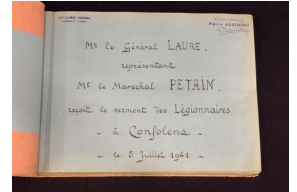 Mr le Général LAURE,
représentant
Mr le Marechal PETAIN,
reçoit le serment des Légionnaires
- à Confolens -
- le 5 Juillet 1941 -